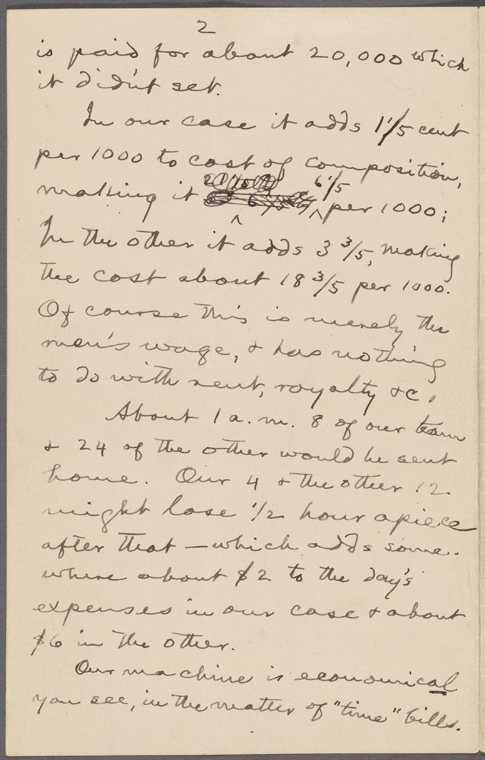 2
is paid for about 20,000 which
it didn't set.
In our case it adds 1 1/5 cent
per 1000 to cost of composition,
making it 6 1/5 per 1000;
In the other it adds 3 3/5, making
the cost about 18 3/5 per 1000.
Of course this is merely the
men's wage, & has nothing
to do with rent, royalty &c.
About 1 a.m. 8 of our team
& 24 of the other would be sent
home. Our 4 & the other 12
might lose 1/2 hour apiece
after that — which adds some-
where about $2 to the day's
expenses in our case & about
$6 in the other.
Our machine is economical
you see, in the matter of "time" bills.